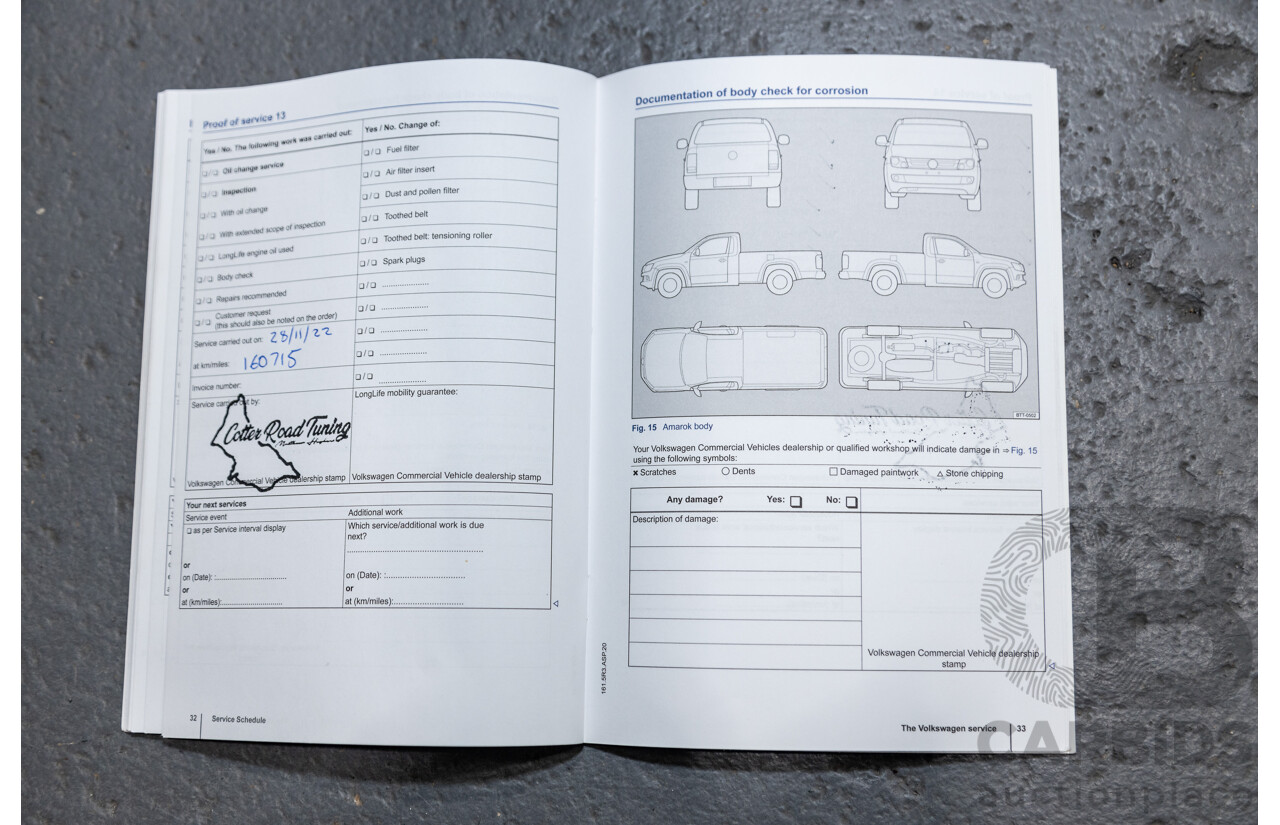 Proof of service 13
Yes / No. The following work was carried out:
❑ / ❑ Oil change service
❑ / ❑ Inspection
❑ / ❑ With oil change
❑ / ❑ With extended scope of inspection
❑ / ❑ LongLife engine oil used
❑ / ❑ Body check
❑ / ❑ Repairs recommended
❑ / ❑ Customer request
(this should also be noted on the order)
Service carried out on: 28/11/22
at km/miles: 160715
Invoice number:
Service carried out by:
Cotter Road Tuning
Volkswagen Commercial Vehicle dealership stamp
Yes / No. Change of:
❑ / ❑ Fuel filter
❑ / ❑ Air filter insert
❑ / ❑ Dust and pollen filter
❑ / ❑ Toothed belt
❑ / ❑ Toothed belt: tensioning roller
❑ / ❑ Spark plugs
❑ / ❑ ....................
❑ / ❑ ....................
❑ / ❑ ....................
❑ / ❑ ....................
❑ / ❑ ....................
LongLife mobility guarantee:
Volkswagen Commercial Vehicle dealership stamp
Your next services
Service event
❑ as per Service interval display
or
on (Date): :..............................
or
at (km/miles):..........................
Additional work
Which service/additional work is due
next?
..........................................................
on (Date): :..................................
or
at (km/miles):..............................
32
Service Schedule
Documentation of body check for corrosion
BTT-0502
Fig. 15 Amarok body
Your Volkswagen Commercial Vehicles dealership or qualified workshop will indicate damage in ⇒ Fig. 15
using the following symbols:
× Scratches ○ Dents □ Damaged paintwork △ Stone chipping
Any damage? Yes: ❑ No: ❑
Description of damage:
Volkswagen Commercial Vehicle dealership
stamp
161.5R3.ASP.20
The Volkswagen service
33
CARBIDS
auctionplace